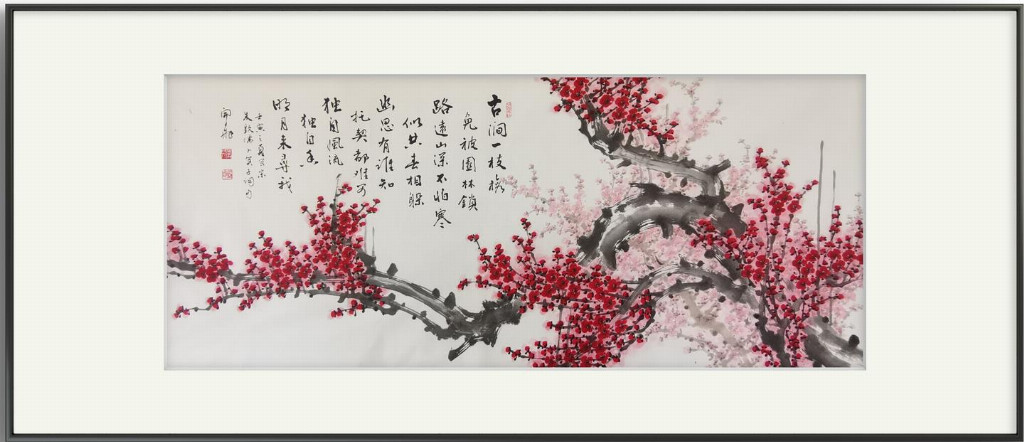 古涧一枝梅
免被園林鎖
路遠山深不怕寒
似共春相躲
幽思有谁知
托契都难可
独自風流
独自香
明月来尋我
壬寅之夏